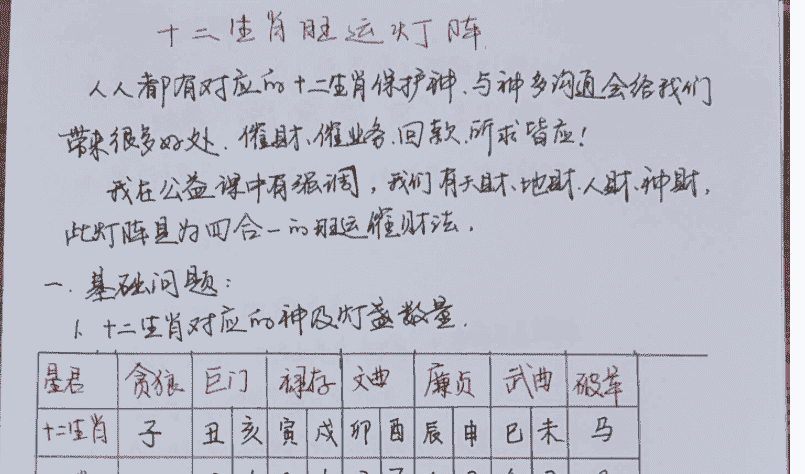 十二生肖旺运灯阵
人人都有对应的十二生肖保护神、与神多沟通会给我们
带来很多好处、催财、催业务、回款、所求皆应！
我在公益课中有强调，我们有天财、地财、人财、神财，
此灯阵是为四合一的旺运催财法。
一、基础问题：
1、十二生肖对应的神及灯盏数量。
星君 贪狼 巨门 禄存 文曲 廉贞 武曲 破军
十二生肖 子 丑 亥 寅 戌 卯 酉 辰 申 巳 未 马